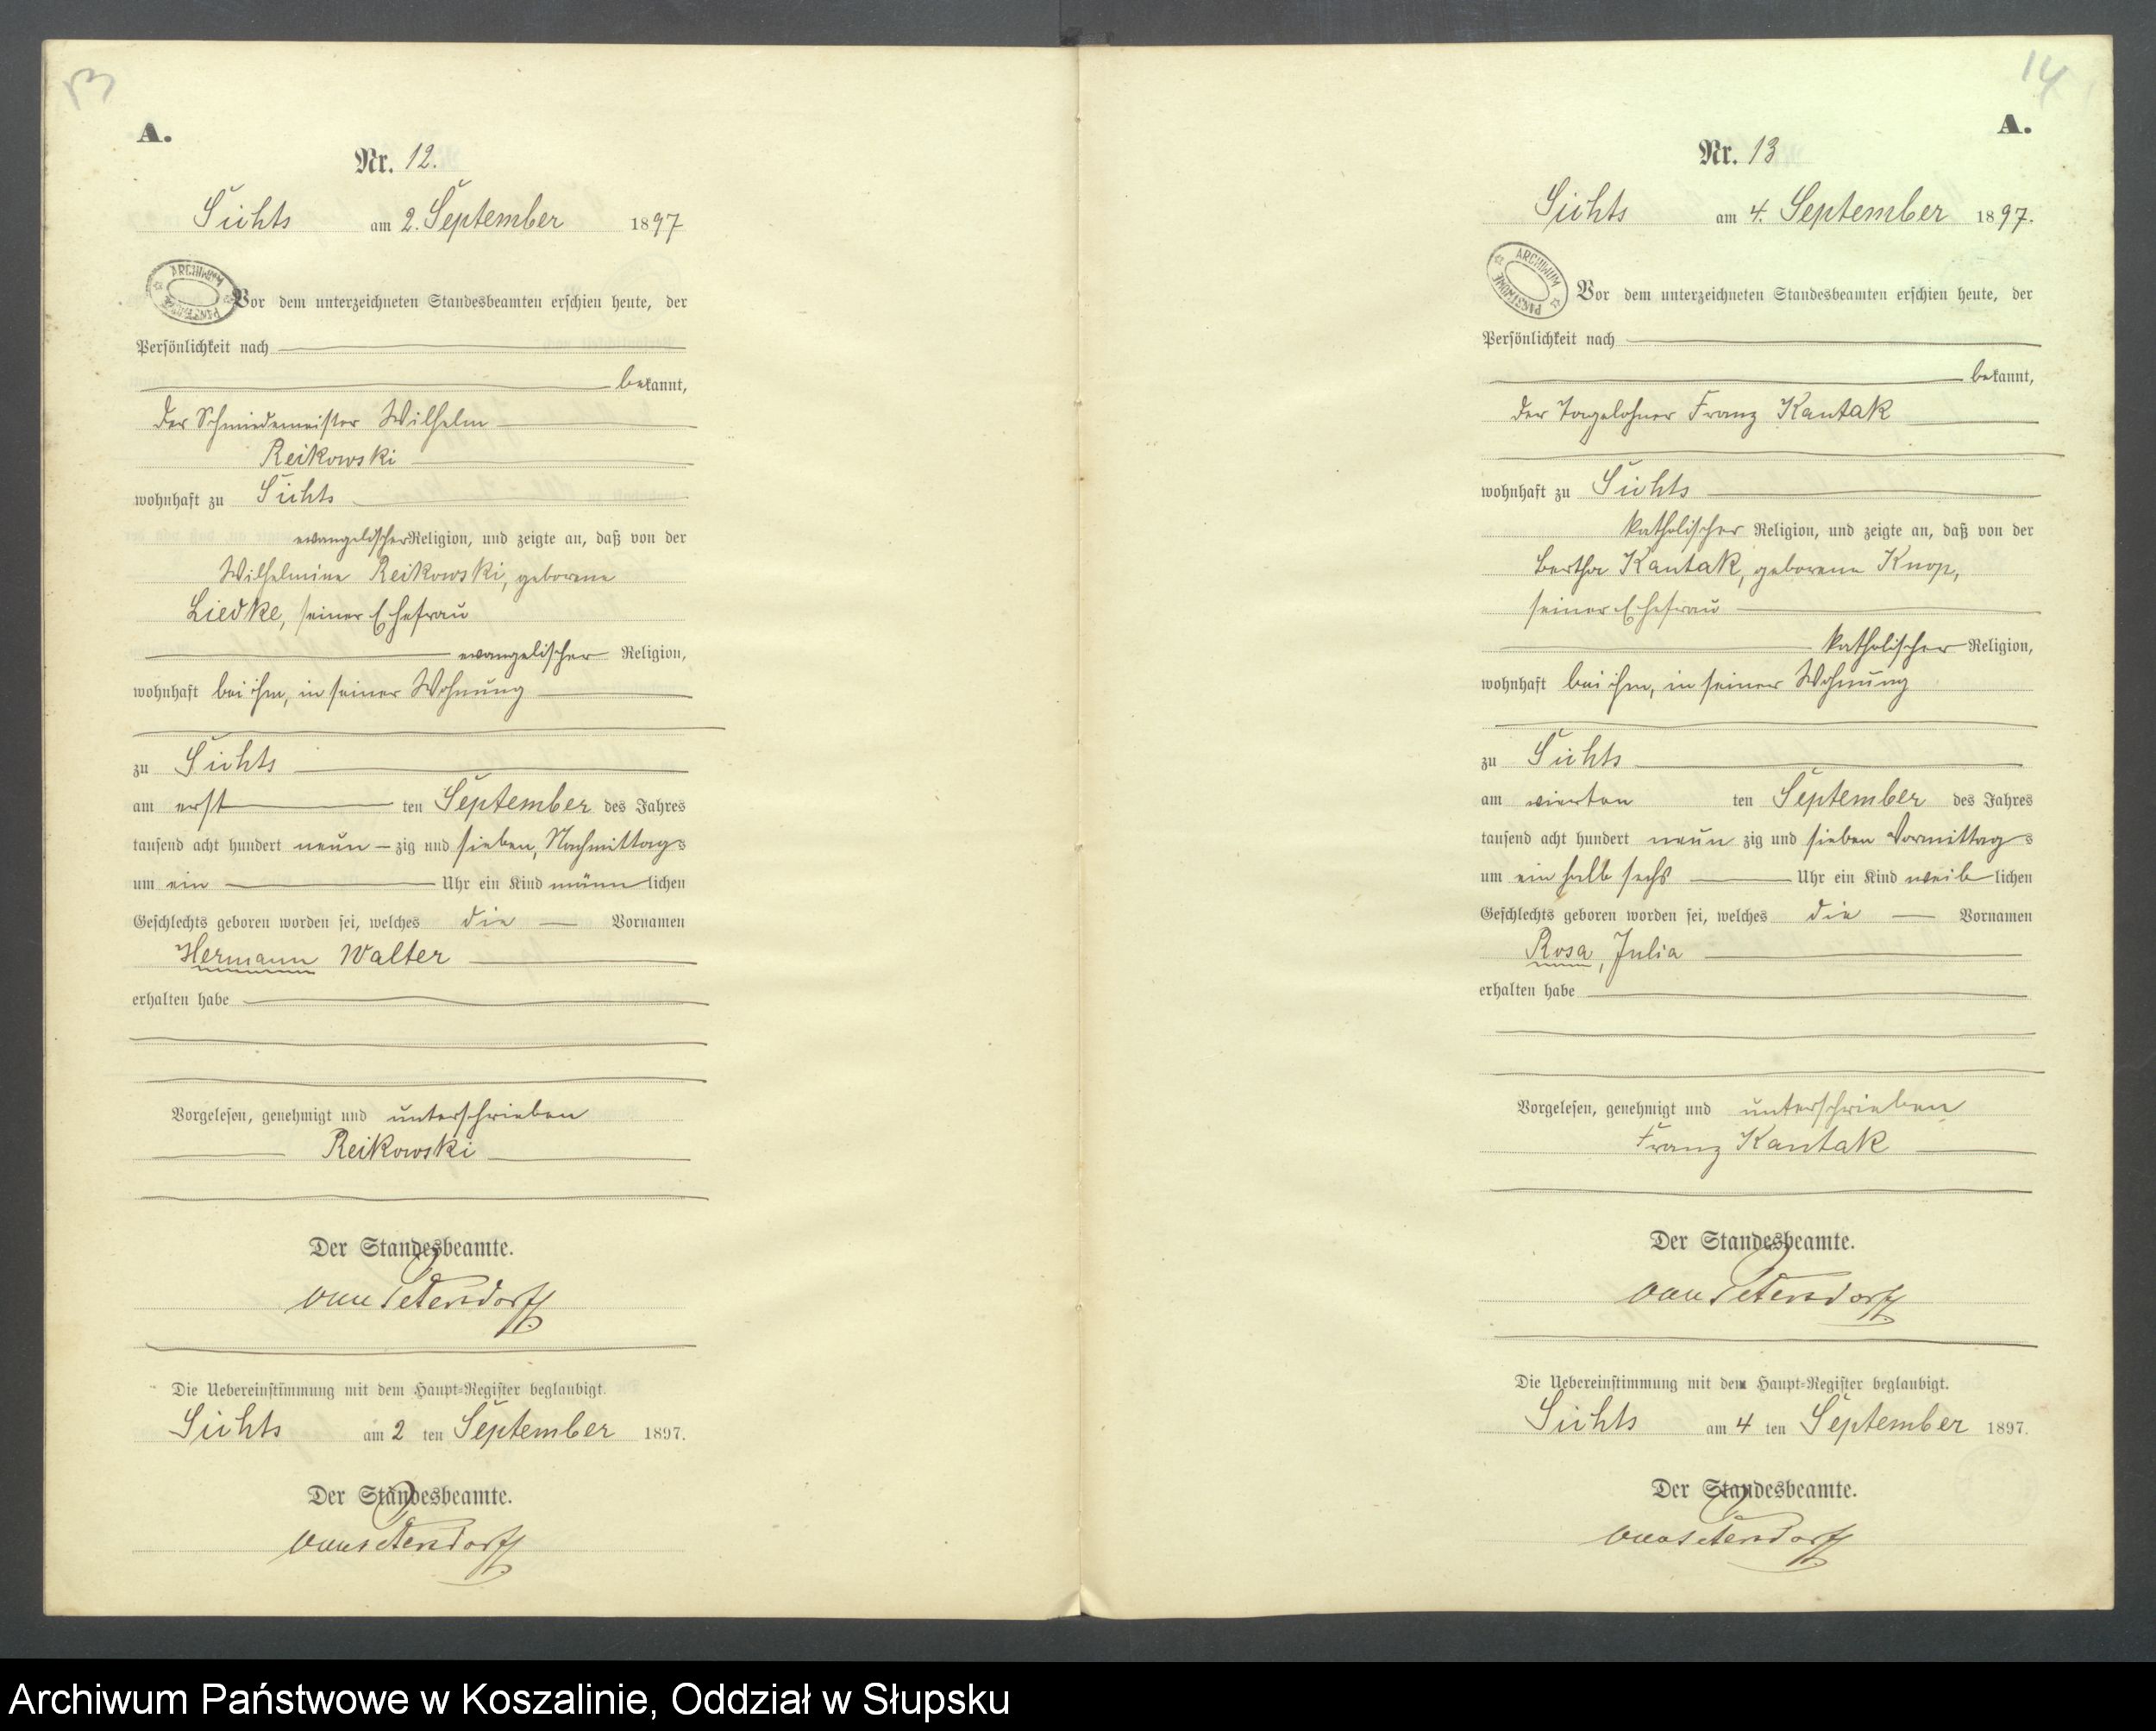 13
A.
Nr. 12.
Sichts am 2. September 1897
ARCHIWUM PAŃSTWOWE
Vor dem unterzeichneten Standesbeamten erschien heute, der
Persönlichkeit nach
bekannt,
der Schmiedemeister Wilhelm
Reikowski
wohnhaft zu Sichts
evangelischer Religion, und zeigte an, daß von der
Wilhelmine Reikowski, geborene
Liedke, seiner Ehefrau
evangelischer Religion,
wohnhaft bei ihm, in seiner Wohnung
zu Sichts
am erst ten September des Jahres
tausend acht hundert neun zig und sieben, Nachmittags
um ein Uhr ein Kind männlichen
Geschlechts geboren worden sei, welches die Vornamen
Hermann Walter
erhalten habe
Vorgelesen, genehmigt und unterschrieben
Reikowski
Der Standesbeamte.
von Petersdorff
Die Uebereinstimmung mit dem Haupt-Register beglaubigt.
Sichts am 2 ten September 1897.
Der Standesbeamte.
von Petersdorff
14
A.
Nr. 13
Sichts am 4. September 1897.
ARCHIWUM PAŃSTWOWE
Vor dem unterzeichneten Standesbeamten erschien heute, der
Persönlichkeit nach
bekannt,
der Tagelohner Franz Kantak
wohnhaft zu Sichts
katholischer Religion, und zeigte an, daß von der
Bertha Kantak, geborene Knop,
seiner Ehefrau
katholischer Religion,
wohnhaft bei ihm, in seiner Wohnung
zu Sichts
am vierten ten September des Jahres
tausend acht hundert neun zig und sieben Vormittags
um ein halb sechs Uhr ein Kind weiblichen
Geschlechts geboren worden sei, welches die Vornamen
Rosa, Julia
erhalten habe
Vorgelesen, genehmigt und unterschrieben
Franz Kantak
Der Standesbeamte.
von Petersdorff
Die Uebereinstimmung mit dem Haupt-Register beglaubigt.
Sichts am 4 ten September 1897.
Der Standesbeamte.
von Petersdorff
Archiwum Państwowe w Koszalinie, Oddział w Słupsku